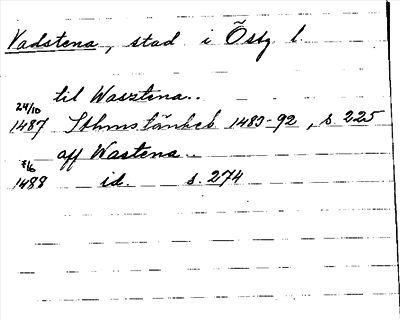 Vadstena, stad i Östg. l.
til Wasztena..
24/10
1487 Sthms tänkeb 1483-92, s. 225
aff Wastena..
1488 id. s. 274